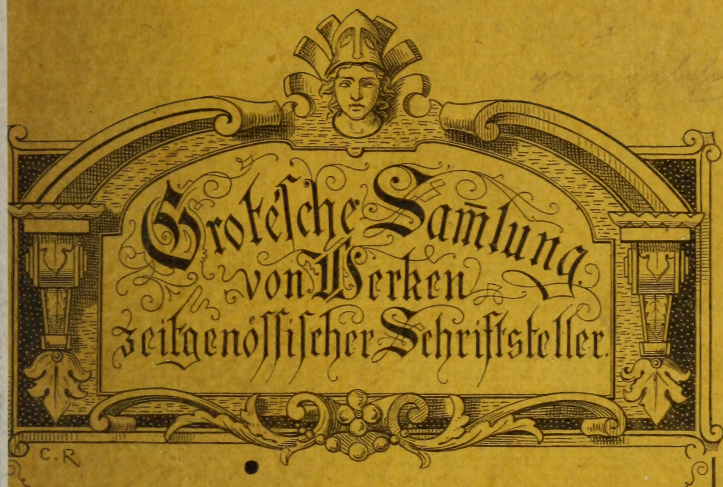 Grote'sche Sam̅lung
von Werken
zeitgenössischer Schriftsteller.
C. R.